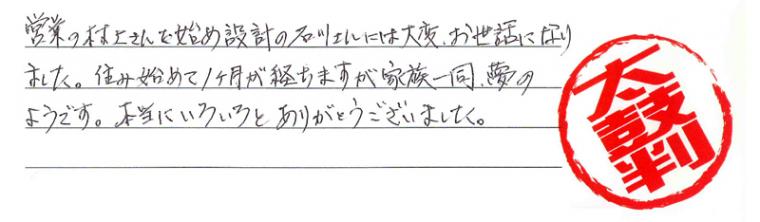 営業の村上さんで始め設計の石川さんには大変、お世話になり
ました。住み始めて1ヶ月が経ちますが家族一同、夢の
ようです。本当にいろいろとありがとうございました。
太鼓判